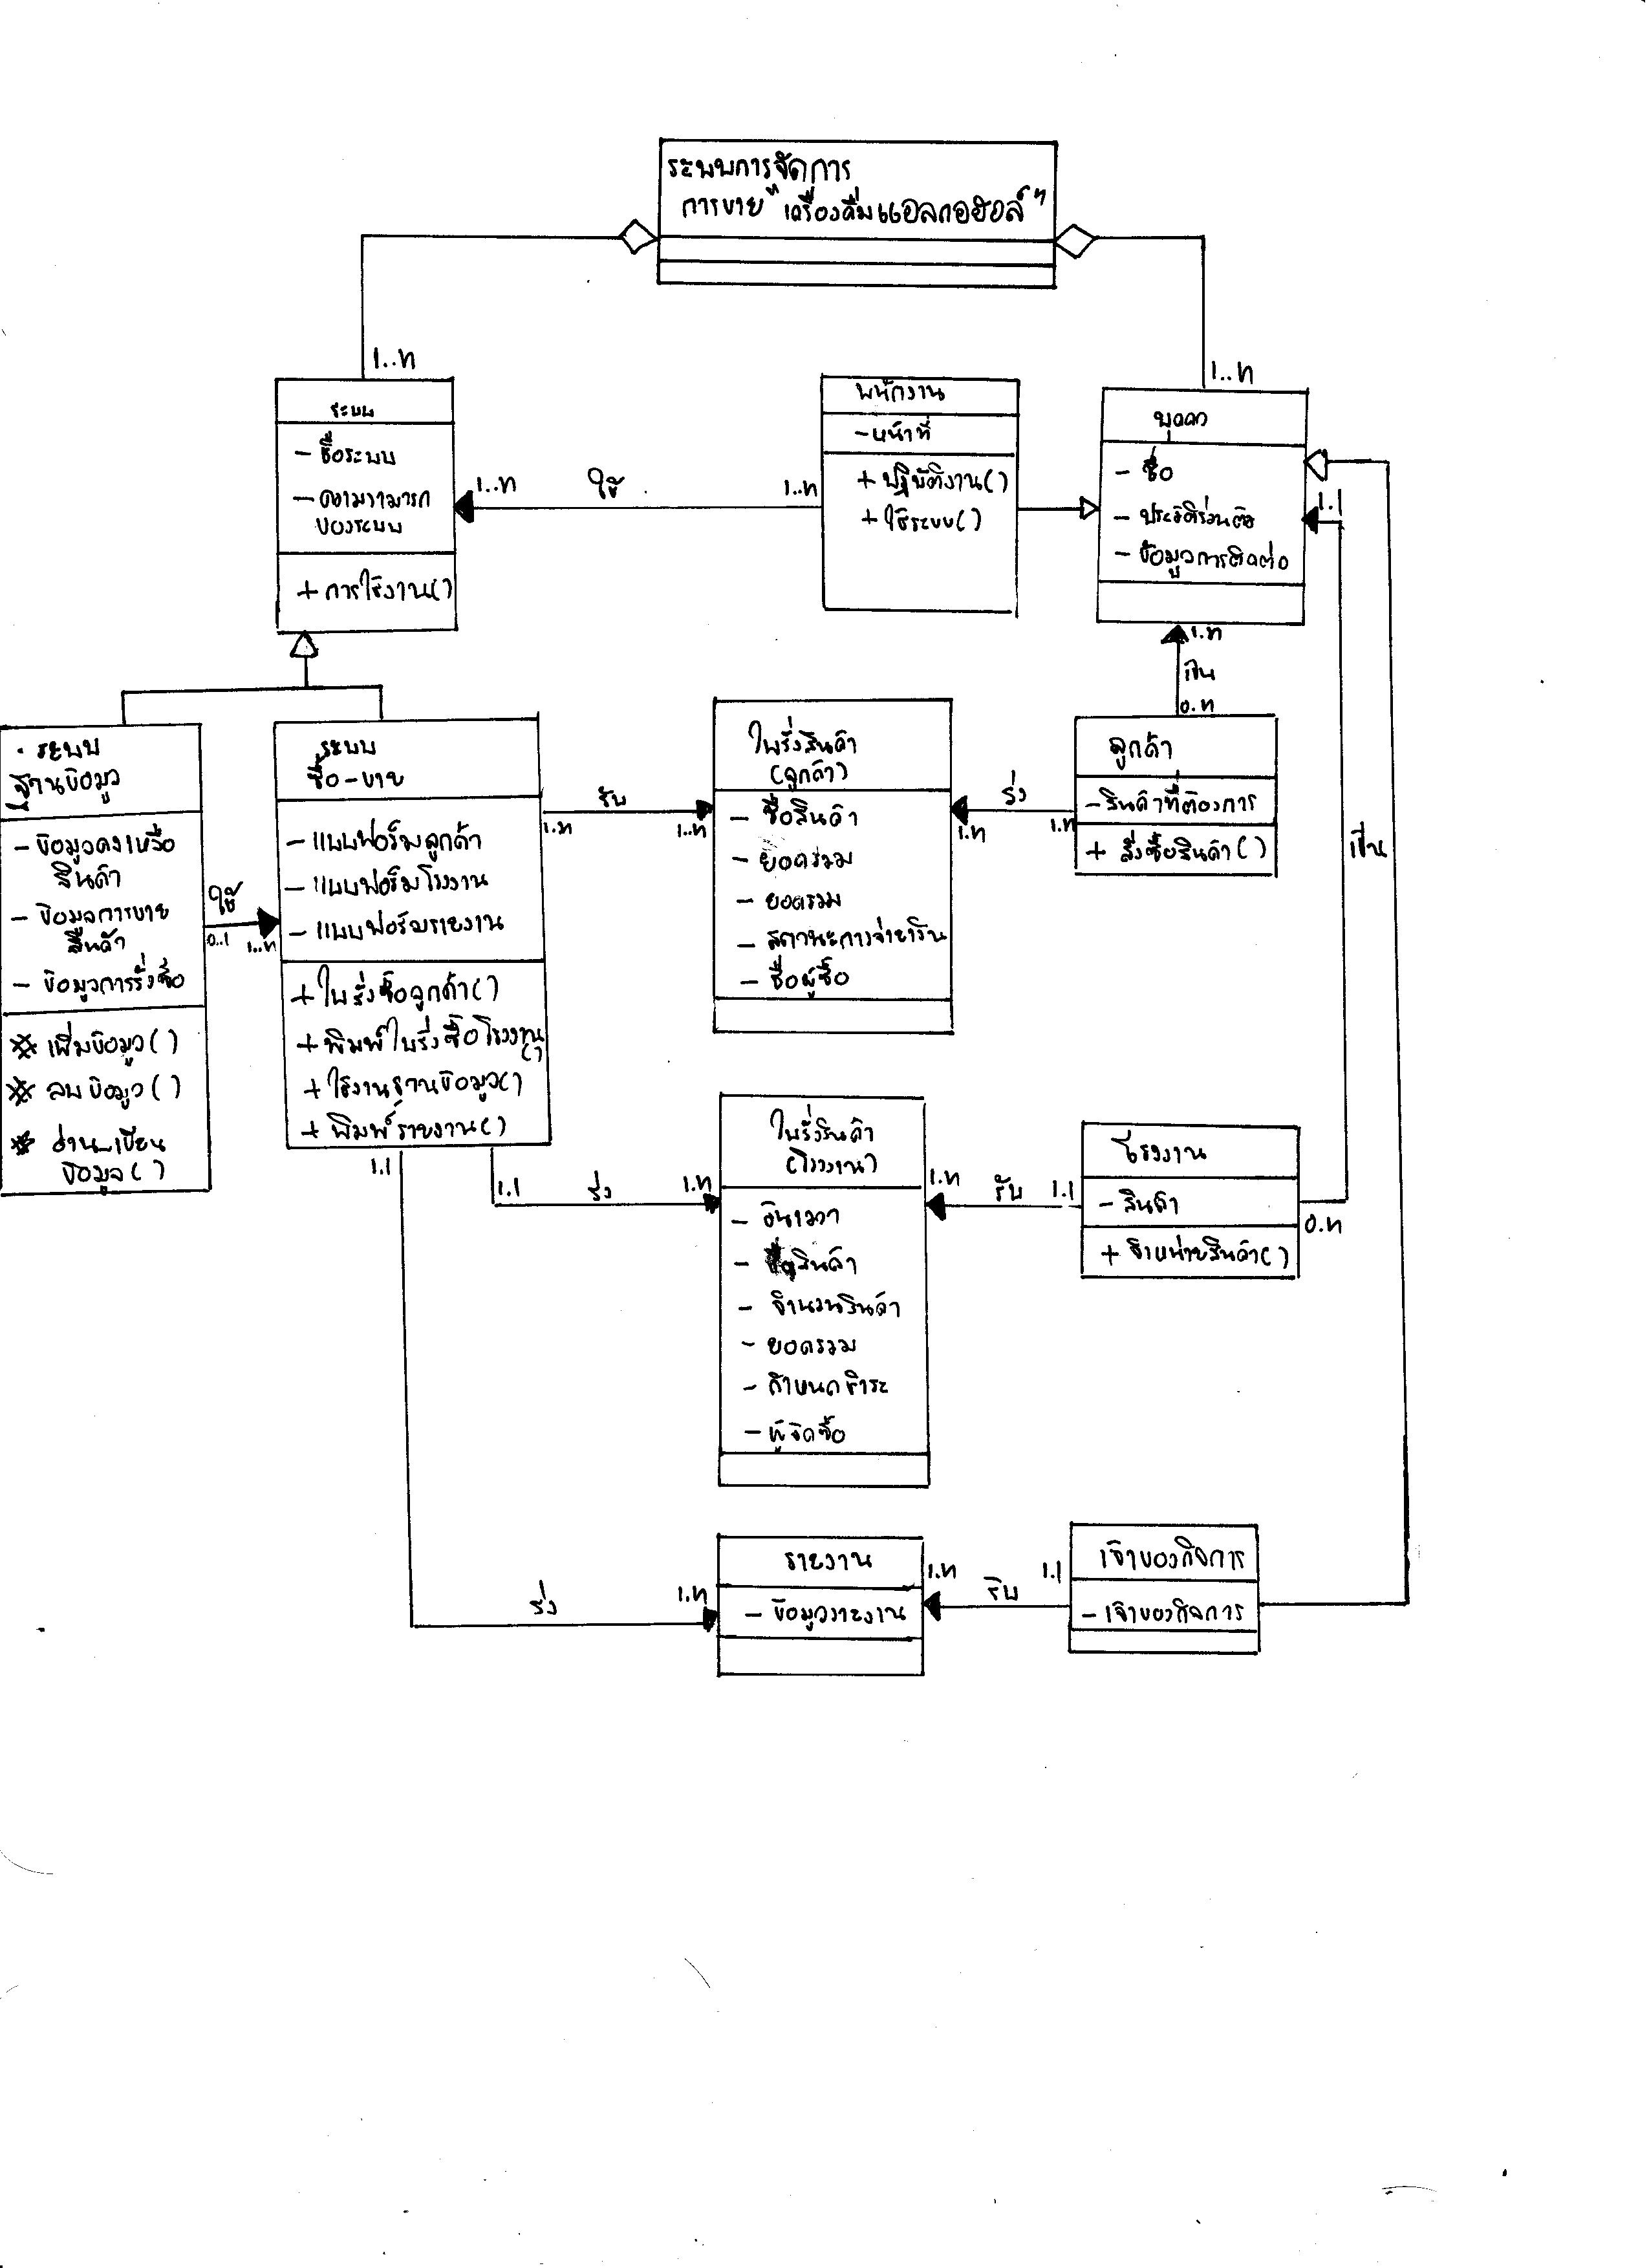 ระบบการจัดการ
การขาย "เครื่องดื่มแอลกอฮอล์"
1..n
1..n
ระบบ
- ชื่อระบบ
- ความสามารถ
ของระบบ
+ การใช้งาน()
1..n
ใช้
1..n
พนักงาน
- หน้าที่
+ ปฏิบัติงาน()
+ ใช้ระบบ()
บุคคล
- ชื่อ
- ประวัติส่วนตัว
- ข้อมูลการติดต่อ
1.1
1.n
เป็น
0.n
ระบบ
ฐานข้อมูล
- ข้อมูลคงเหลือ
สินค้า
- ข้อมูลการขาย
สินค้า
- ข้อมูลการสั่งซื้อ
เพิ่มข้อมูล()
ลบข้อมูล()
อ่าน_เขียน
ข้อมูล()
ใช้
0..1
1..n
ระบบ
ซื้อ-ขาย
- แบบฟอร์มลูกค้า
- แบบฟอร์มโรงงาน
- แบบฟอร์มรายงาน
+ ใบสั่งซื้อลูกค้า()
+ พิมพ์ใบสั่งซื้อโรงงาน
()
+ ใช้งานฐานข้อมูล()
+ พิมพ์รายงาน()
รับ
1..n
1..n
ใบสั่งสินค้า
(ลูกค้า)
- ชื่อสินค้า
- ยอดรวม
- ยอดรวม
- สถานะการจ่ายเงิน
- ชื่อผู้ซื้อ
สั่ง
1.n
1.n
ลูกค้า
- สินค้าที่ต้องการ
+ สั่งซื้อสินค้า()
เป็น
1.1
1.1
สั่ง
1.n
ใบสั่งสินค้า
(โรงงาน)
- วันเวลา
- ชื่อสินค้า
- จำนวนสินค้า
- ยอดรวม
- กำหนดชำระ
- ผู้จัดซื้อ
1.n
รับ
1.1
โรงงาน
- สินค้า
+ จำหน่ายสินค้า()
0.n
สั่ง
1.n
รายงาน
- ข้อมูลรายงาน
1.n
รับ
1.1
เจ้าของกิจการ
- เจ้าของกิจการ